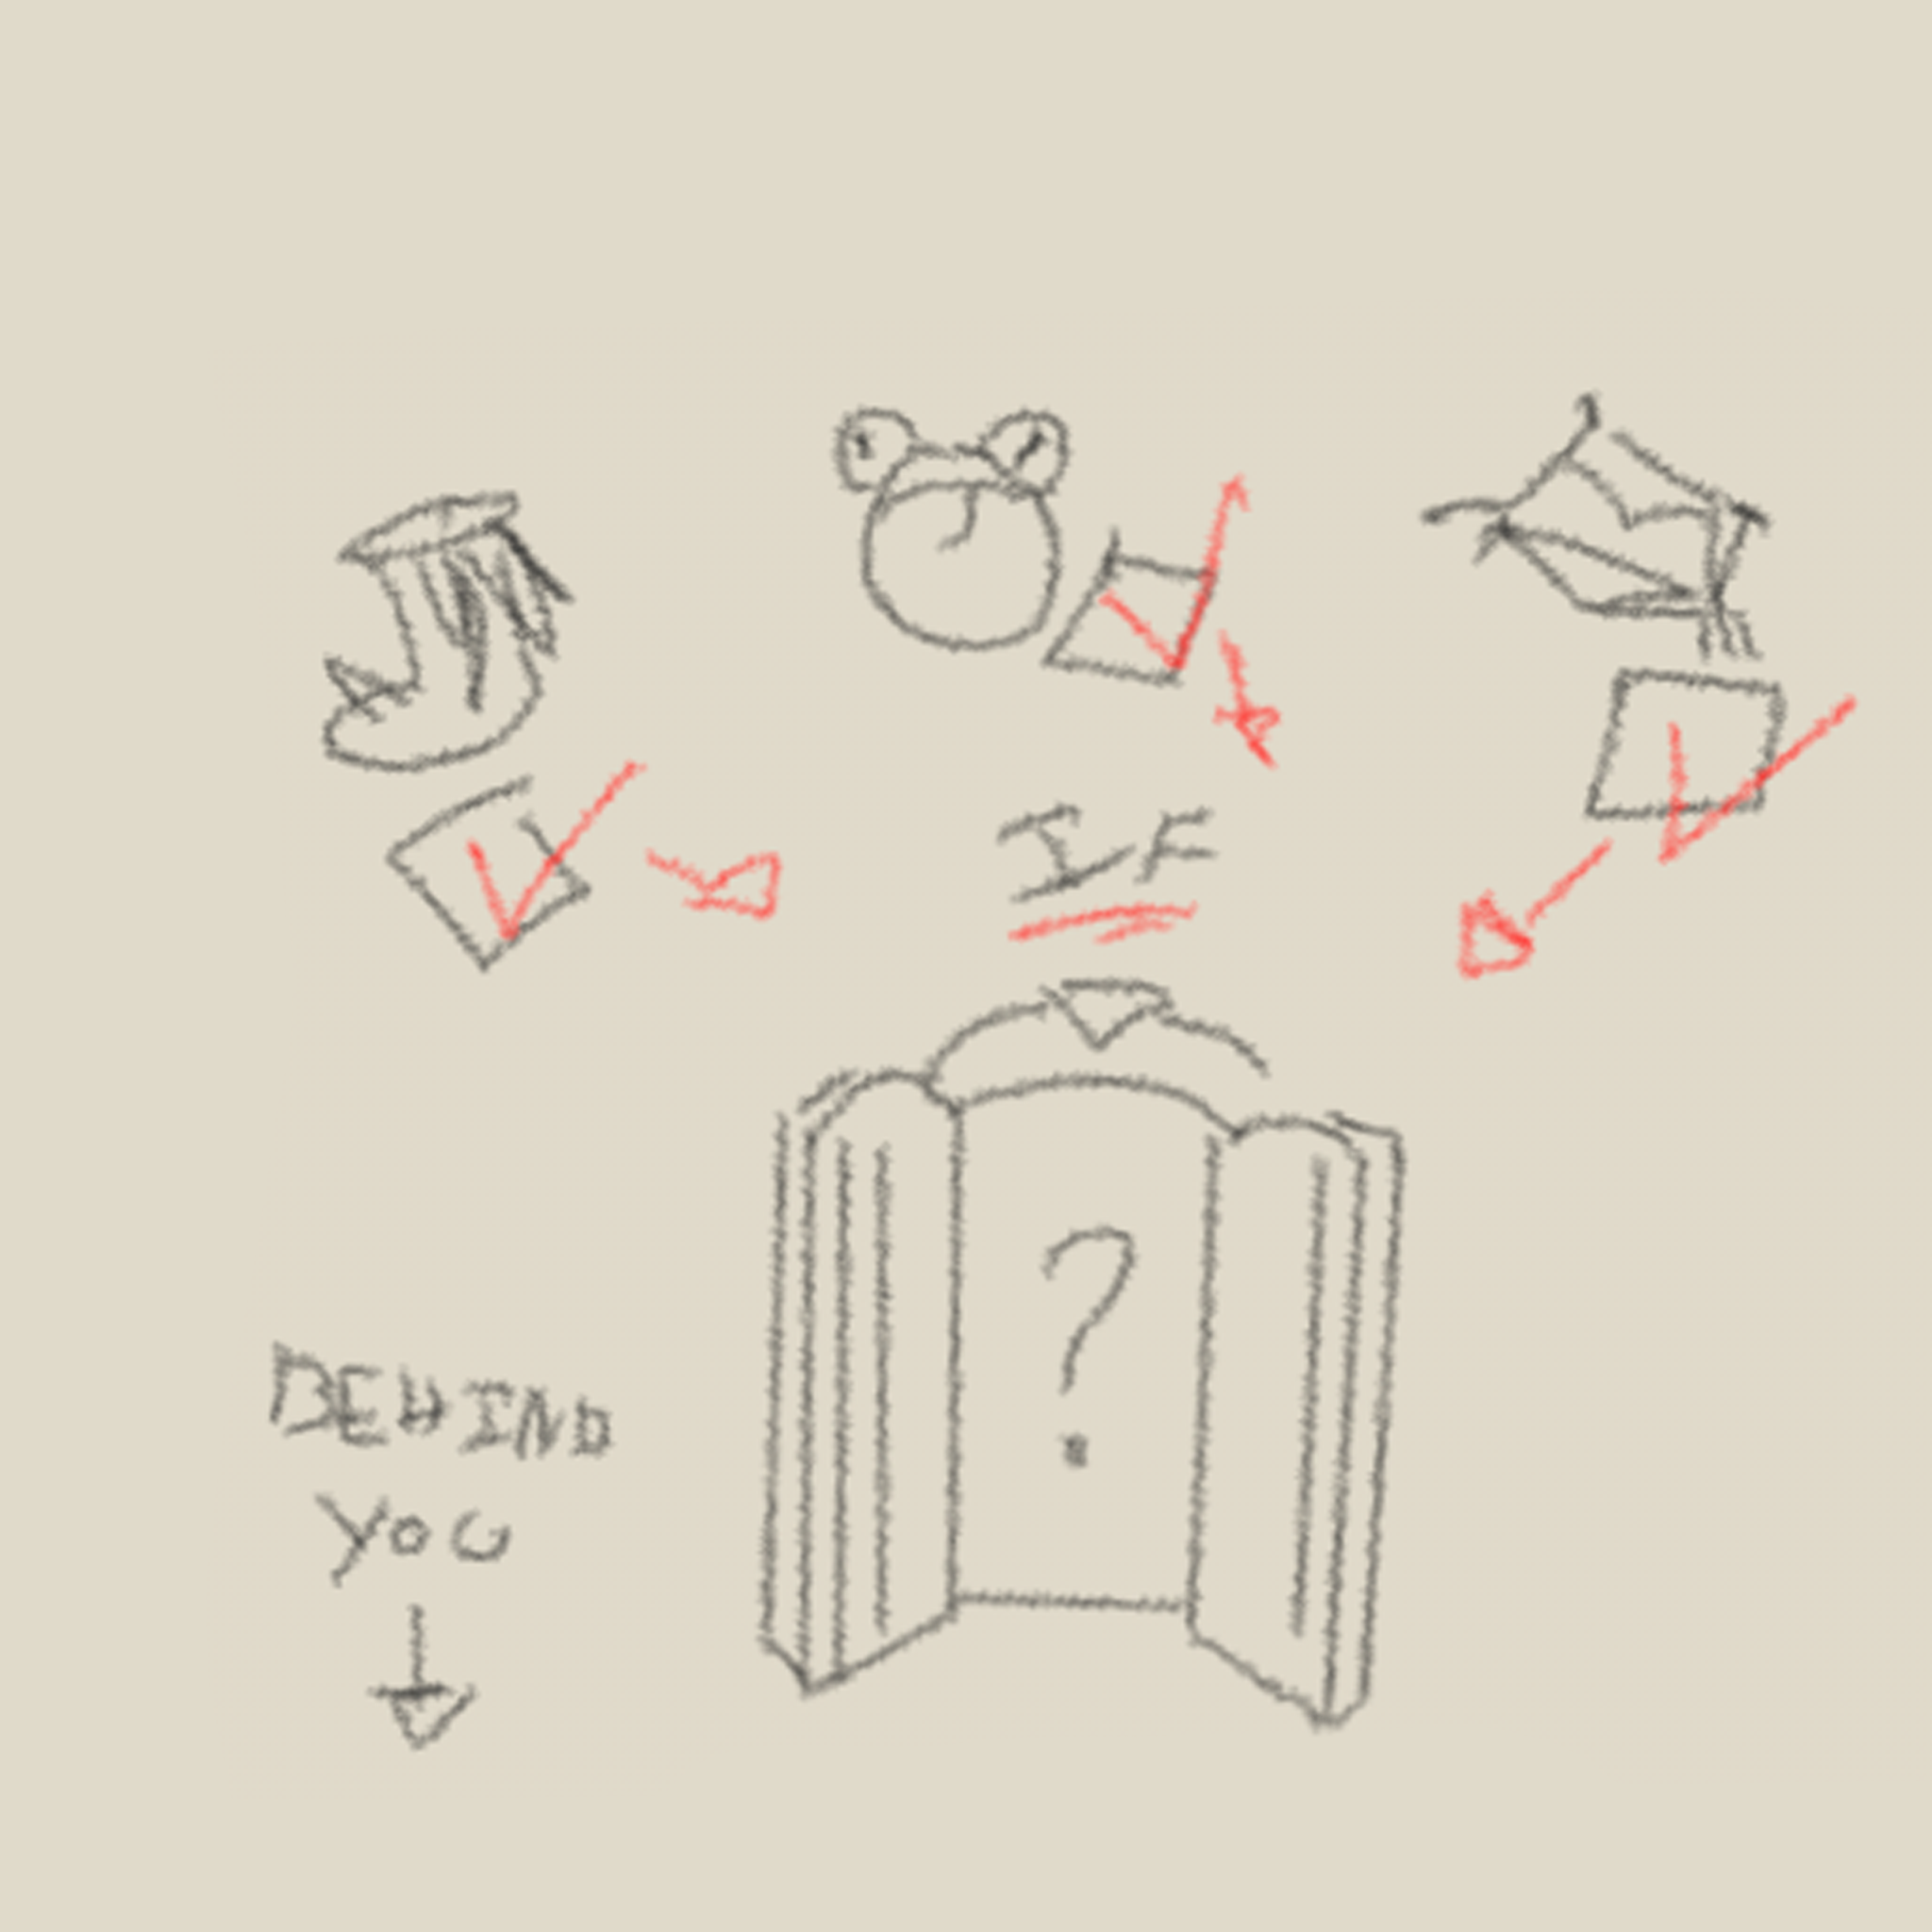 IF
?
BEHIND
YOU